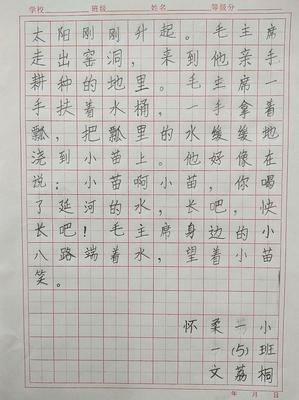 学校 班级 姓名 等级分
太阳刚刚升起。毛主席
走出窑洞，来到他亲手
耕种的地里。毛主席一
手扶着水桶，一手拿着
瓢，把瓢里的水缓缓地
浇到小苗上。他好像在
说：小苗啊小苗，你喝
了延河的水，长吧，快
长吧！毛主席身边的小
八路端着水，望着小苗
笑。
怀柔一小
一(5)班
文荔桐
年 月 日